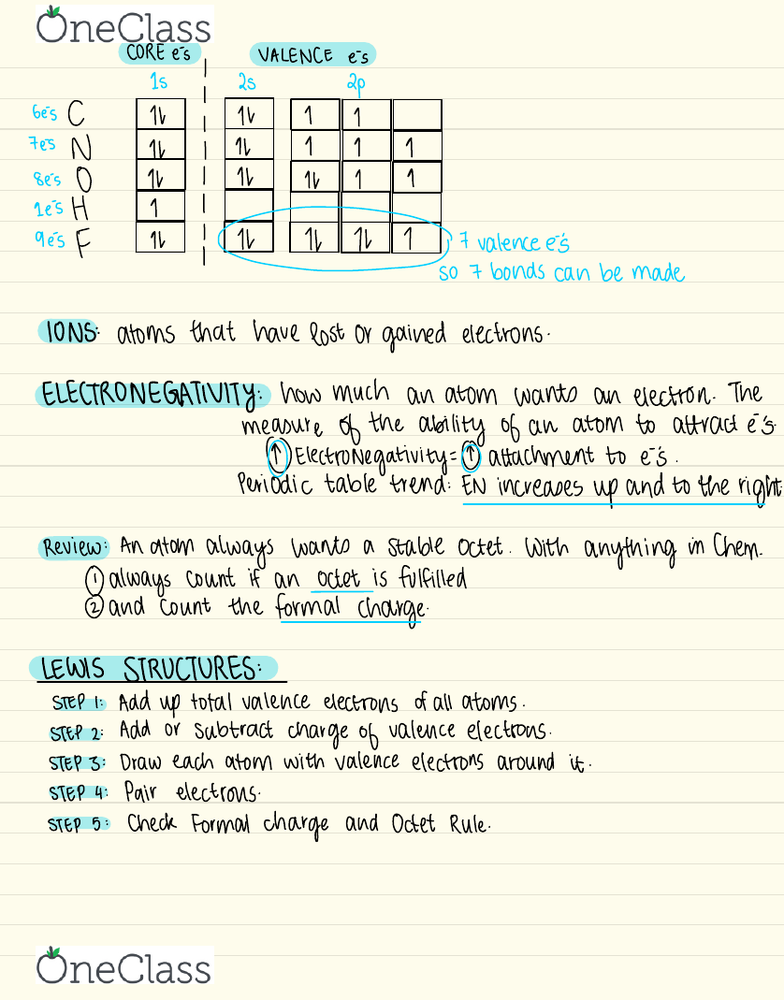 OneClass
CORE e⁻s VALENCE e⁻s
1s 2s 2p
6e⁻s C 1⇂ 1⇂ 1 1
7e⁻s N 1⇂ 1⇂ 1 1 1
8e⁻s O 1⇂ 1⇂ 1⇂ 1 1
1e⁻s H 1
9e⁻s F 1⇂ 1⇂ 1⇂ 1⇂ 1 7 valence e⁻s
so 7 bonds can be made
IONS: atoms that have lost or gained electrons.
ELECTRONEGATIVITY: how much an atom wants an electron. The
measure of the ability of an atom to attract e⁻s.
↑ ElectroNegativity = ↑ attachment to e⁻s.
Periodic table trend: EN increases up and to the right
Review: An atom always wants a stable octet. With anything in Chem.
① always count if an octet is fulfilled
② and count the formal charge.
LEWIS STRUCTURES:
STEP 1: Add up total valence electrons of all atoms.
STEP 2: Add or Subtract charge of valence electrons.
STEP 3: Draw each atom with valence electrons around it.
STEP 4: Pair electrons.
STEP 5: Check Formal charge and Octet Rule.
OneClass